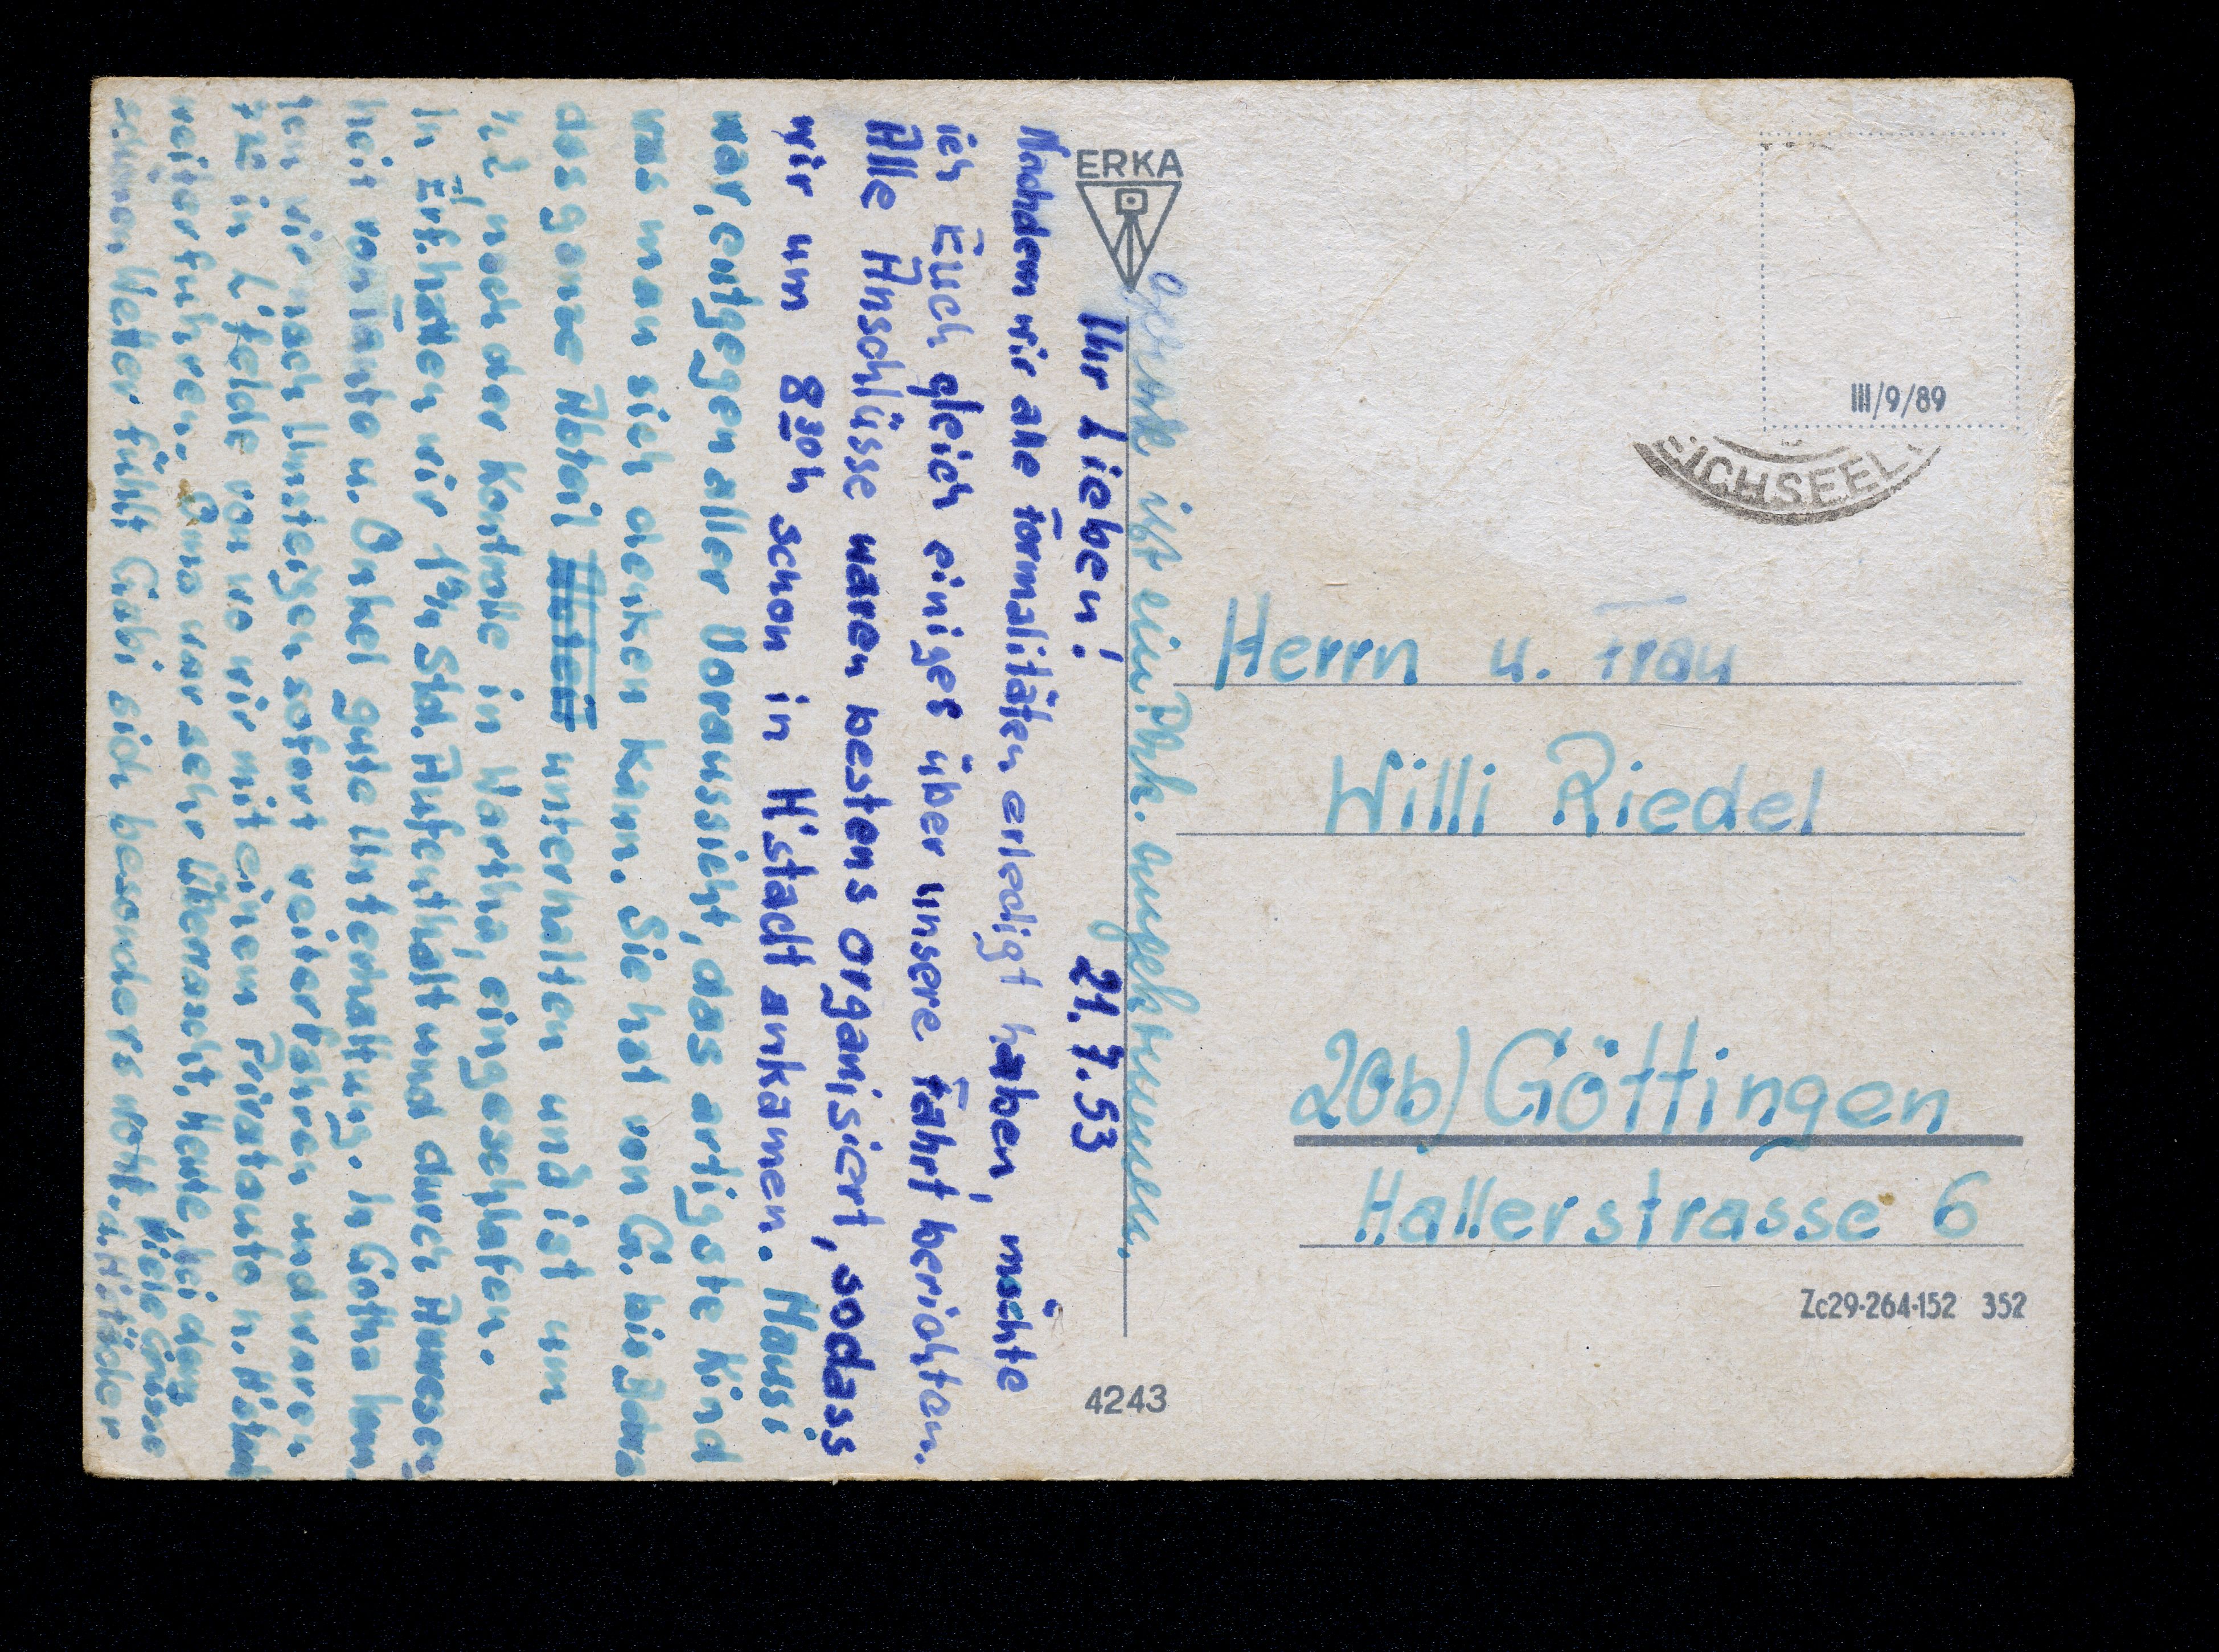 ERKA
Ihr Lieben! 21.7.53
Nachdem wir alle Formalitäten erledigt haben, möchte
ich Euch gleich einiges über unsere Fahrt berichten.
Alle Anschlüsse waren bestens organisiert, sodass
wir um 8³⁰h schon in H'stadt ankamen. Hausi
war, entgegen aller Voraussicht, das artigste Kind
was man sich denken kann. Sie hat von G. bis
das ganze Abteil unterhalten und ist um
nach der Kontrolle in Wartha, eingeschlafen.
In Erf. hatten wir Std. Aufenthalt und durch Anwesen-
heit von Tante u. Onkel gute Unterhaltung. In Gotha konn
ten wir nach Umsteigen sofort weiterfahren und waren
in I'felde von wo wir mit einem Privatauto n.
weiterfuhren. Oma war sehr überrascht. Heute, bei dem
schönen Wetter fühlt Gabi sich besonders wohl.
Viele Grüsse
ist ein Pkt. angekommen.
III/9/89
ICHSEEL
Herrn u. Frau
Willi Riedel
20b) Göttingen
Hallerstrasse 6
Zc29-264-152 352
4243